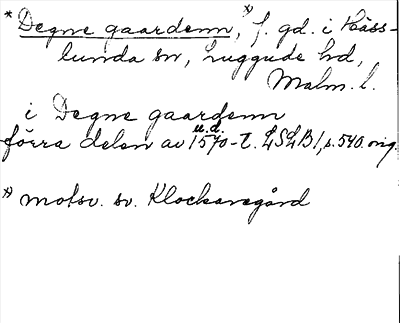 * Degne gaardenn, *) f. gd. i Käss-
lunda sn, Luggude hd,
Malm. l.
i Degne gaardenn
förra delen av 1570-t. LSLB 1, s. 540. orig.
u. d.
*) motsv. sv. Klockaregård